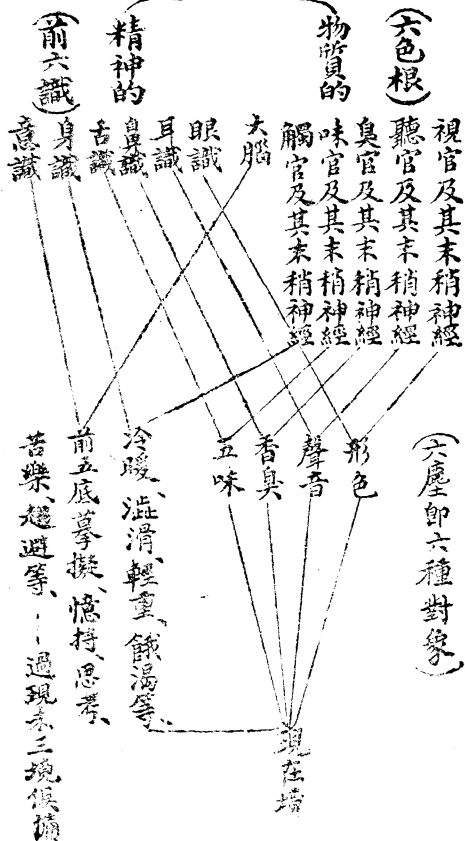 (六色根)
物質的
視官及其末稍神經
聽官及其末稍神經
臭官及其末稍神經
味官及其末稍神經
觸官及其末稍神經
大腦
精神的
(前六識)
眼識
耳識
鼻識
舌識
身識
意識
(六塵即六種對象)
形色
聲音
香臭
五味
冷暖、澁滑、輕重、餓渴等、
前五底摹擬、憶持、思考、
苦樂、趨避等、——過現未三境俱
現在境